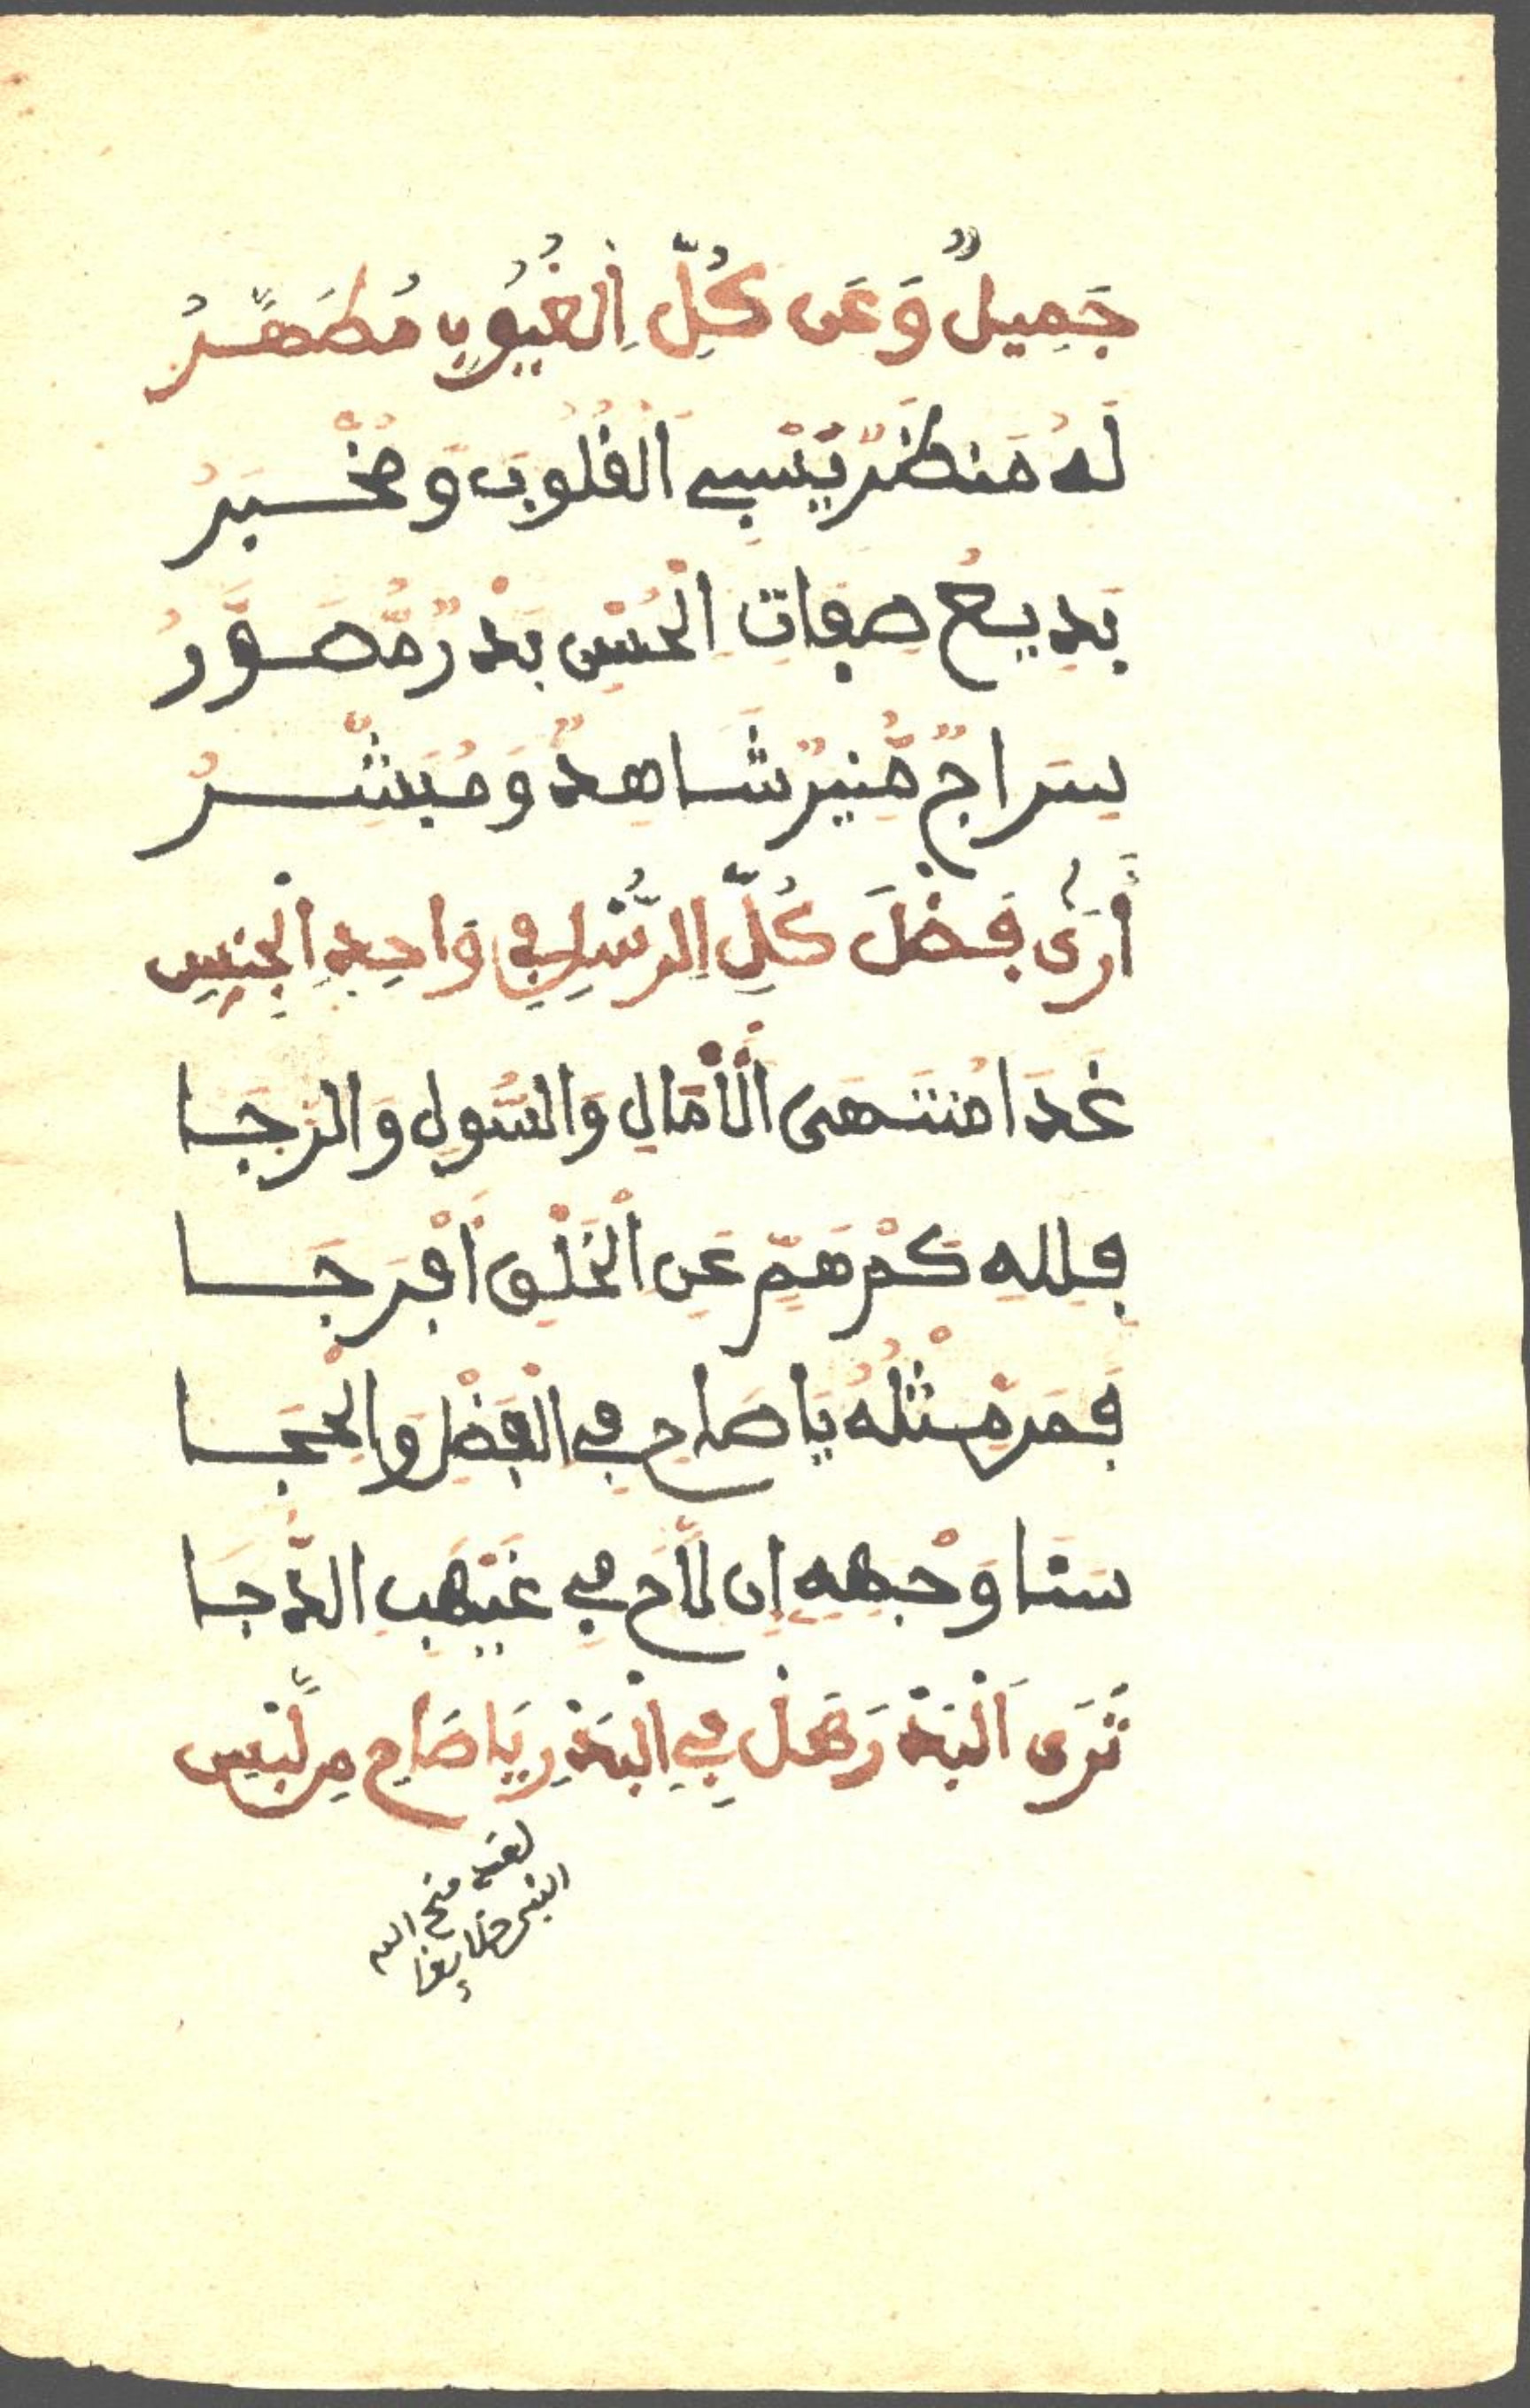 جَمِيلٌ وَعَن كُلِّ اِلْعُيُوبِ مُطَهَّرُ
لَهُ مَنظَرٌ يَّسْبِي الْقُلُوبَ وَمَخْبَرُ
بَدِيعُ صِفَاتِ الْحُسْنِ بَدْرٌ مُّصَوَّرُ
سِرَاجٌ مُّنِيرٌ شَاهِدٌ وَمُبَشِّرُ
أَرَى فَضْلَ كُلِّ اِلرُّسْلِ فِي وَاحِدِ اِلْجِنسِ
غَدَا مُنتَهَى الْأَمَالِ وَالسُّولِ وَالرَّجَا
فَلِلهِ كَمْ هَمٍّ عَنِ الْخَلْقِ أَفْرَجَا
فَمَن مِّثْلُهُ يَا صَاحِ فِي الْفَضْلِ وَالْحِجَا
سَنَا وَجْهِهِ إِن لَّاحَ فِي غَيْهَبِ الدُّجَا
تَرَى اَلْبَدْرَ هَلْ فِي اِلْبَدْرِ يَا صَاحِ مِن لَّبْسِ